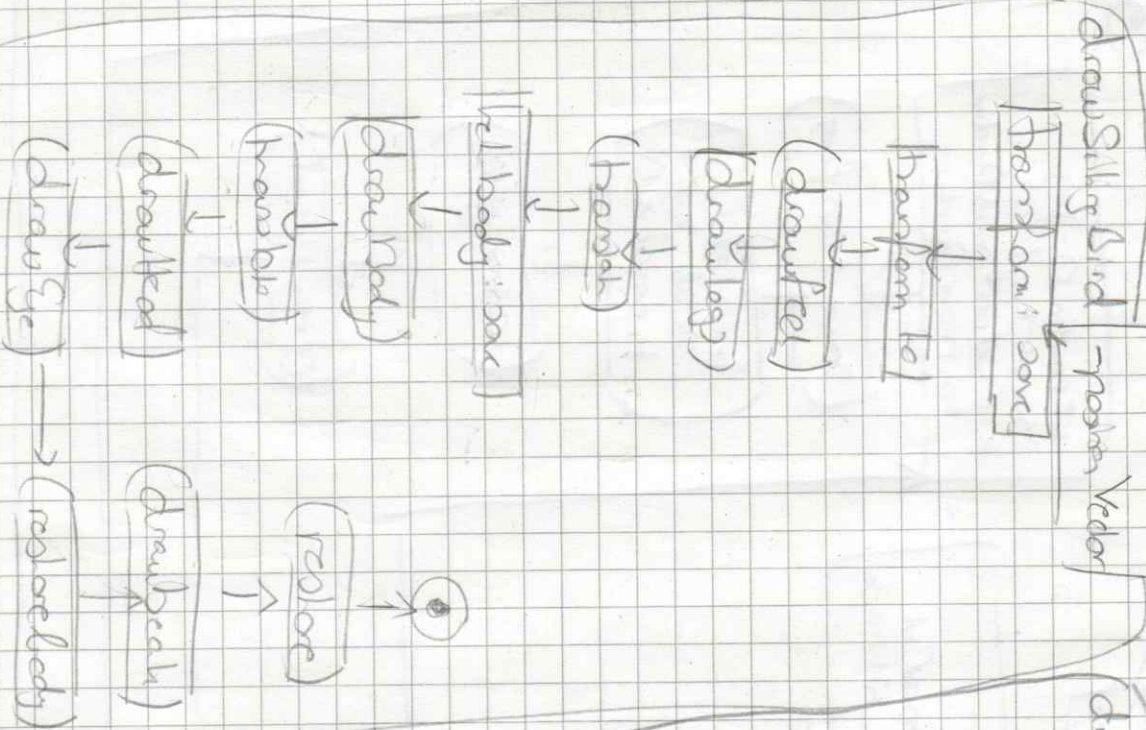 drawSillyBird - position Vector
transform: save
transform To
drawfeet
drawlegs
translate
tiltbody: save
drawBody
translate
drawHead
drawEye
restorebody
drawbeak
restore